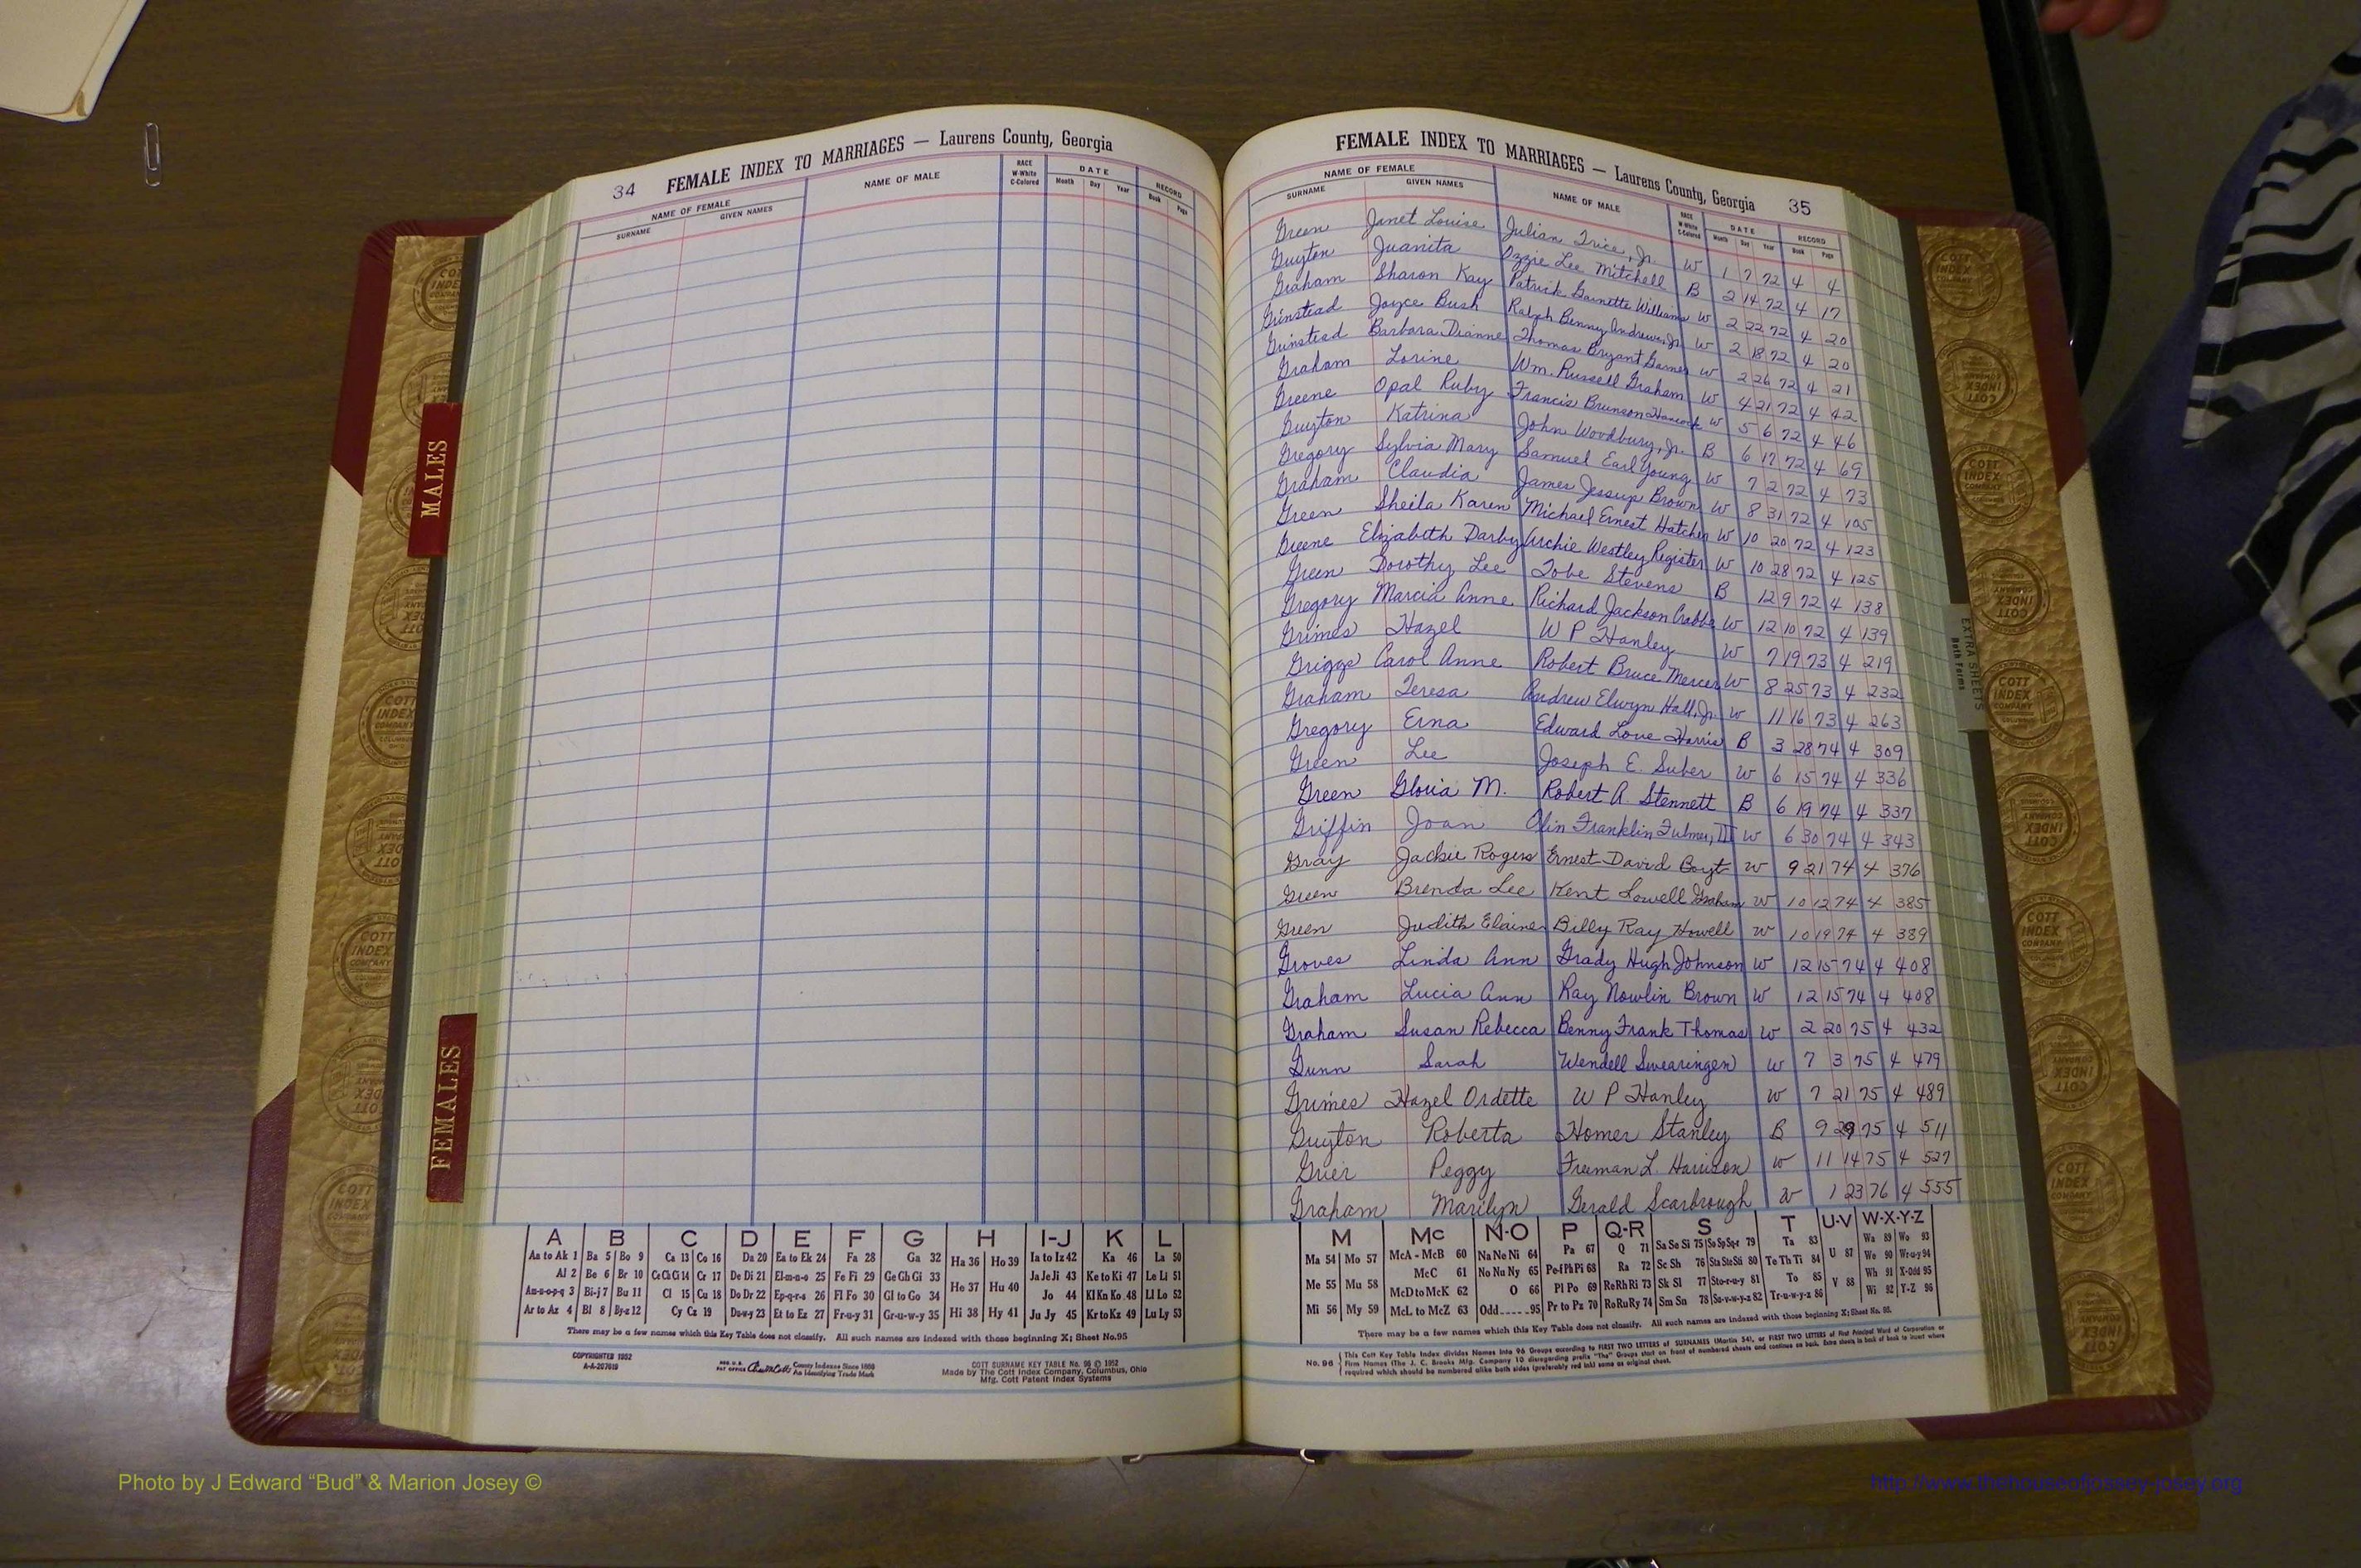 34 FEMALE INDEX TO MARRIAGES — Laurens County, Georgia
NAME OF FEMALE NAME OF MALE RACE W-White C-Colored DATE RECORD
SURNAME GIVEN NAMES Month Day Year Book Page
MALES
FEMALES
A B C D E F G H I-J K L
Aa to Ak 1 Ba 5 Bo 9 Ca 13 Co 16 Da 20 Ea to Ek 24 Fa 28 Ga 32 Ha 36 Ho 39 Ia to Iz 42 Ka 46 La 50
Al 2 Be 6 Br 10 Ce Ch Ci 14 Cr 17 De Di 21 El-m-n-o 25 Fe Fi 29 Ge Gh Gi 33 He 37 Hu 40 Ja Je Ji 43 Ke to Ki 47 Le Li 51
Am-n-o-p-q 3 Bi-j 7 Bu 11 Cl 15 Cu 18 Do Dr 22 Ep-q-r-s 26 Fl Fo 30 Gl to Go 34 Jo 44 Kl Kn Ko 48 Ll Lo 52
Ar to Az 4 Bl 8 By-z 12 Cy Cz 19 Du-w-y 23 Et to Ez 27 Fr-u-y 31 Gr-u-w-y 35 Hi 38 Hy 41 Ju Jy 45 Kr to Kz 49 Lu Ly 53
There may be a few names which this Key Table does not classify. All such names are indexed with those beginning X; Sheet No.95
COPYRIGHTED 1952
A-A-207619
County Indexes Since 1888
An Identifying Trade Mark
COTT SURNAME KEY TABLE No. 96 © 1952
Made by The Cott Index Company, Columbus, Ohio
Mfg. Cott Patent Index Systems
FEMALE INDEX TO MARRIAGES — Laurens County, Georgia 35
NAME OF FEMALE NAME OF MALE RACE W-White C-Colored DATE RECORD
SURNAME GIVEN NAMES Month Day Year Book Page
Green Janet Louise Julian Trice, Jr. W 1 7 72 4 4
Guyton Juanita Ozzie Lee Mitchell B 2 14 72 4 17
Graham Sharon Kay Patrick Garnette Williams W 2 22 72 4 20
Grinstead Joyce Bush Ralph Benny Andrews, Jr. W 2 18 72 4 20
Grinstead Barbara Dianne Thomas Bryant Garner W 2 26 72 4 21
Graham Lorine Wm. Russell Graham W 4 21 72 4 42
Greene Opal Ruby Francis Brunson Hancock W 5 6 72 4 46
Guyton Katrina John Woodbury, Jr. B 6 17 72 4 69
Gregory Sylvia Mary Samuel Earl Young W 7 2 72 4 73
Graham Claudia James Jessup Brown W 8 31 72 4 105
Green Sheila Karen Michael Ernest Hatcher W 10 20 72 4 123
Greene Elizabeth Darby Archie Westley Register W 10 28 72 4 125
Green Dorothy Lee Tobe Stevens B 12 9 72 4 138
Gregory Marcia Anne Richard Jackson Crabbe W 12 10 72 4 139
Grimes Hazel W P Hanley W 7 19 73 4 219
Griggs Carol Anne Robert Bruce Mercer W 8 25 73 4 232
Graham Teresa Andrew Elwyn Hall, Jr. W 11 16 73 4 263
Gregory Erna Edward Love Harris B 3 28 74 4 309
Green Lee Joseph E. Suber W 6 15 74 4 336
Green Gloria M. Robert A. Stennett B 6 19 74 4 337
Griffin Joan Olin Franklin Fulmer, III W 6 30 74 4 343
Gray Jackie Rogers Ernest David Boyt W 9 21 74 4 376
Green Brenda Lee Kent Lowell Graham W 10 12 74 4 385
Green Judith Elaine Billy Ray Howell W 10 19 74 4 389
Groves Linda Ann Grady Hugh Johnson W 12 15 74 4 408
Graham Lucia Ann Ray Nowlin Brown W 12 15 74 4 408
Graham Susan Rebecca Benny Frank Thomas W 2 20 75 4 432
Gunn Sarah Wendell Swearingen W 7 3 75 4 479
Grimes Hazel Ordette W P Hanley W 7 21 75 4 489
Guyton Roberta Homer Stanley B 9 29 75 4 511
Grier Peggy Freeman L. Harrison W 11 14 75 4 527
Graham Marilyn Gerald Scarbrough W 1 23 76 4 555
EXTRA SHEETS
Both Forms
M Mc N-O P Q-R S T U-V W-X-Y-Z
Ma 54 Mo 57 McA - McB 60 Na Ne Ni 64 Pa 67 Q 71 Sa Se Si 75 So Sp Sq-r 79 Ta 83 U 87 Wa 89 Wo 93
McC 61 No Nu Ny 65 Pe-f Ph Pi 68 Ra 72 Sc Sh 76 Sta Ste Sti 80 Te Th Ti 84 We 90 Wr-u-y 94
Me 55 Mu 58 McD to McK 62 O 66 Pl Po 69 Re Rh Ri 73 Sk Sl 77 Sto-r-u-y 81 To 85 V 88 Wh 91 X-Odd 95
Mi 56 My 59 McL to McZ 63 Odd.....95 Pr to Pz 70 Ro Ru Ry 74 Sm Sn 78 Su-v-w-y-z 82 Tr-u-w-y-z 86 Wi 92 Y-Z 96
There may be a few names which this Key Table does not classify. All such names are indexed with those beginning X; Sheet No. 95.
No. 96 This Cott Key Table Index divides Names into 96 Groups according to FIRST TWO LETTERS of SURNAMES (Martin 54), or FIRST TWO LETTERS of First Principal Word of Corporation or
Firm Names (The J. C. Brooks Mfg. Company 10 disregarding prefix "The" Groups start on front of numbered sheets and continue on back. Extra sheets in back of book to insert where
required which should be numbered alike both sides (preferably red ink) same as original sheet.
COTT INDEX COMPANY
Photo by J Edward “Bud” & Marion Josey ©
http://www.thehouseofjossey-josey.org